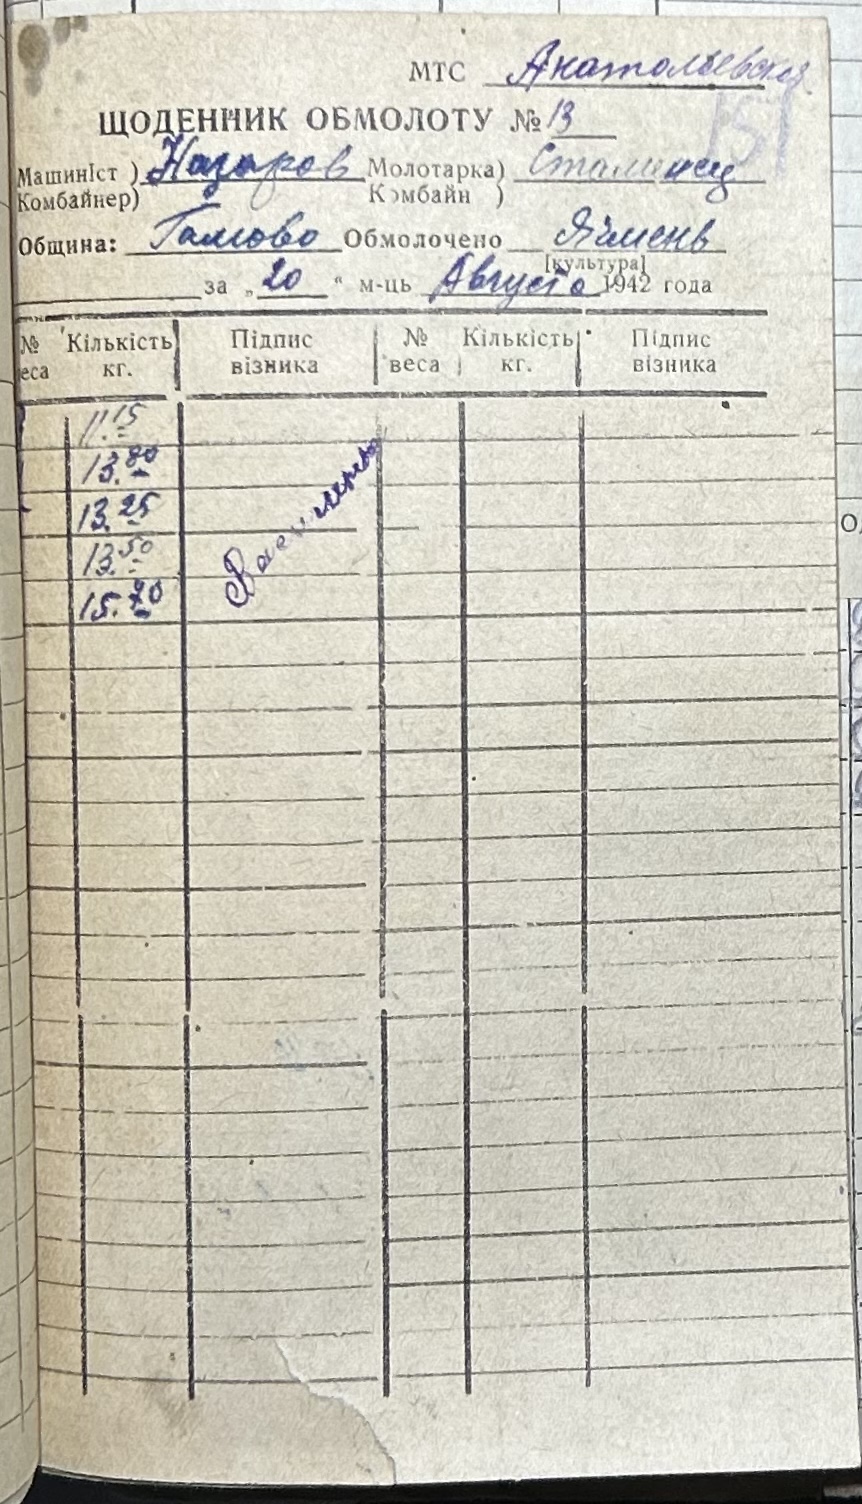 МТС Анатольевская
151
ЩОДЕННИК ОБМОЛОТУ № 13
Машиніст ) Назаров Молотарка)
Комбайнер) Комбайн )
Община: Обмолочено Ячмень
[культура]
за „20“ м-ць Августа 1942 года
№ Кількість Підпис № Кількість Підпис
веса кг. візника веса кг. візника
11.15
13.80
13.25
13.50
15.20